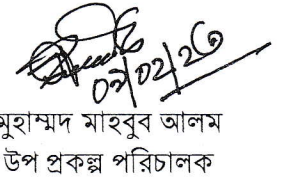 ০৭/০২/২৩
মুহাম্মদ মাহবুব আলম
উপ প্রকল্প পরিচালক